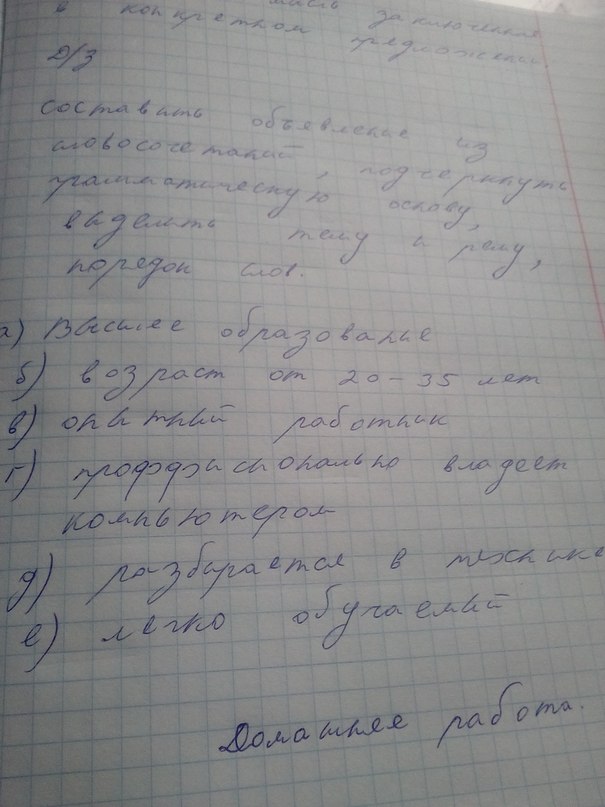 мысль заключенная
в конкретном предложении.
Д/З
составить объявление из
словосочетаний, подчеркнуть
грамматическую основу,
выделить тему и рему,
порядок слов.
а) Высшее образование
б) возраст от 20-35 лет
в) опытный работник
г) профффисионально владеет
компьютером
д) разбирается в технике
е) легко обучаемый
Домашняя работа.